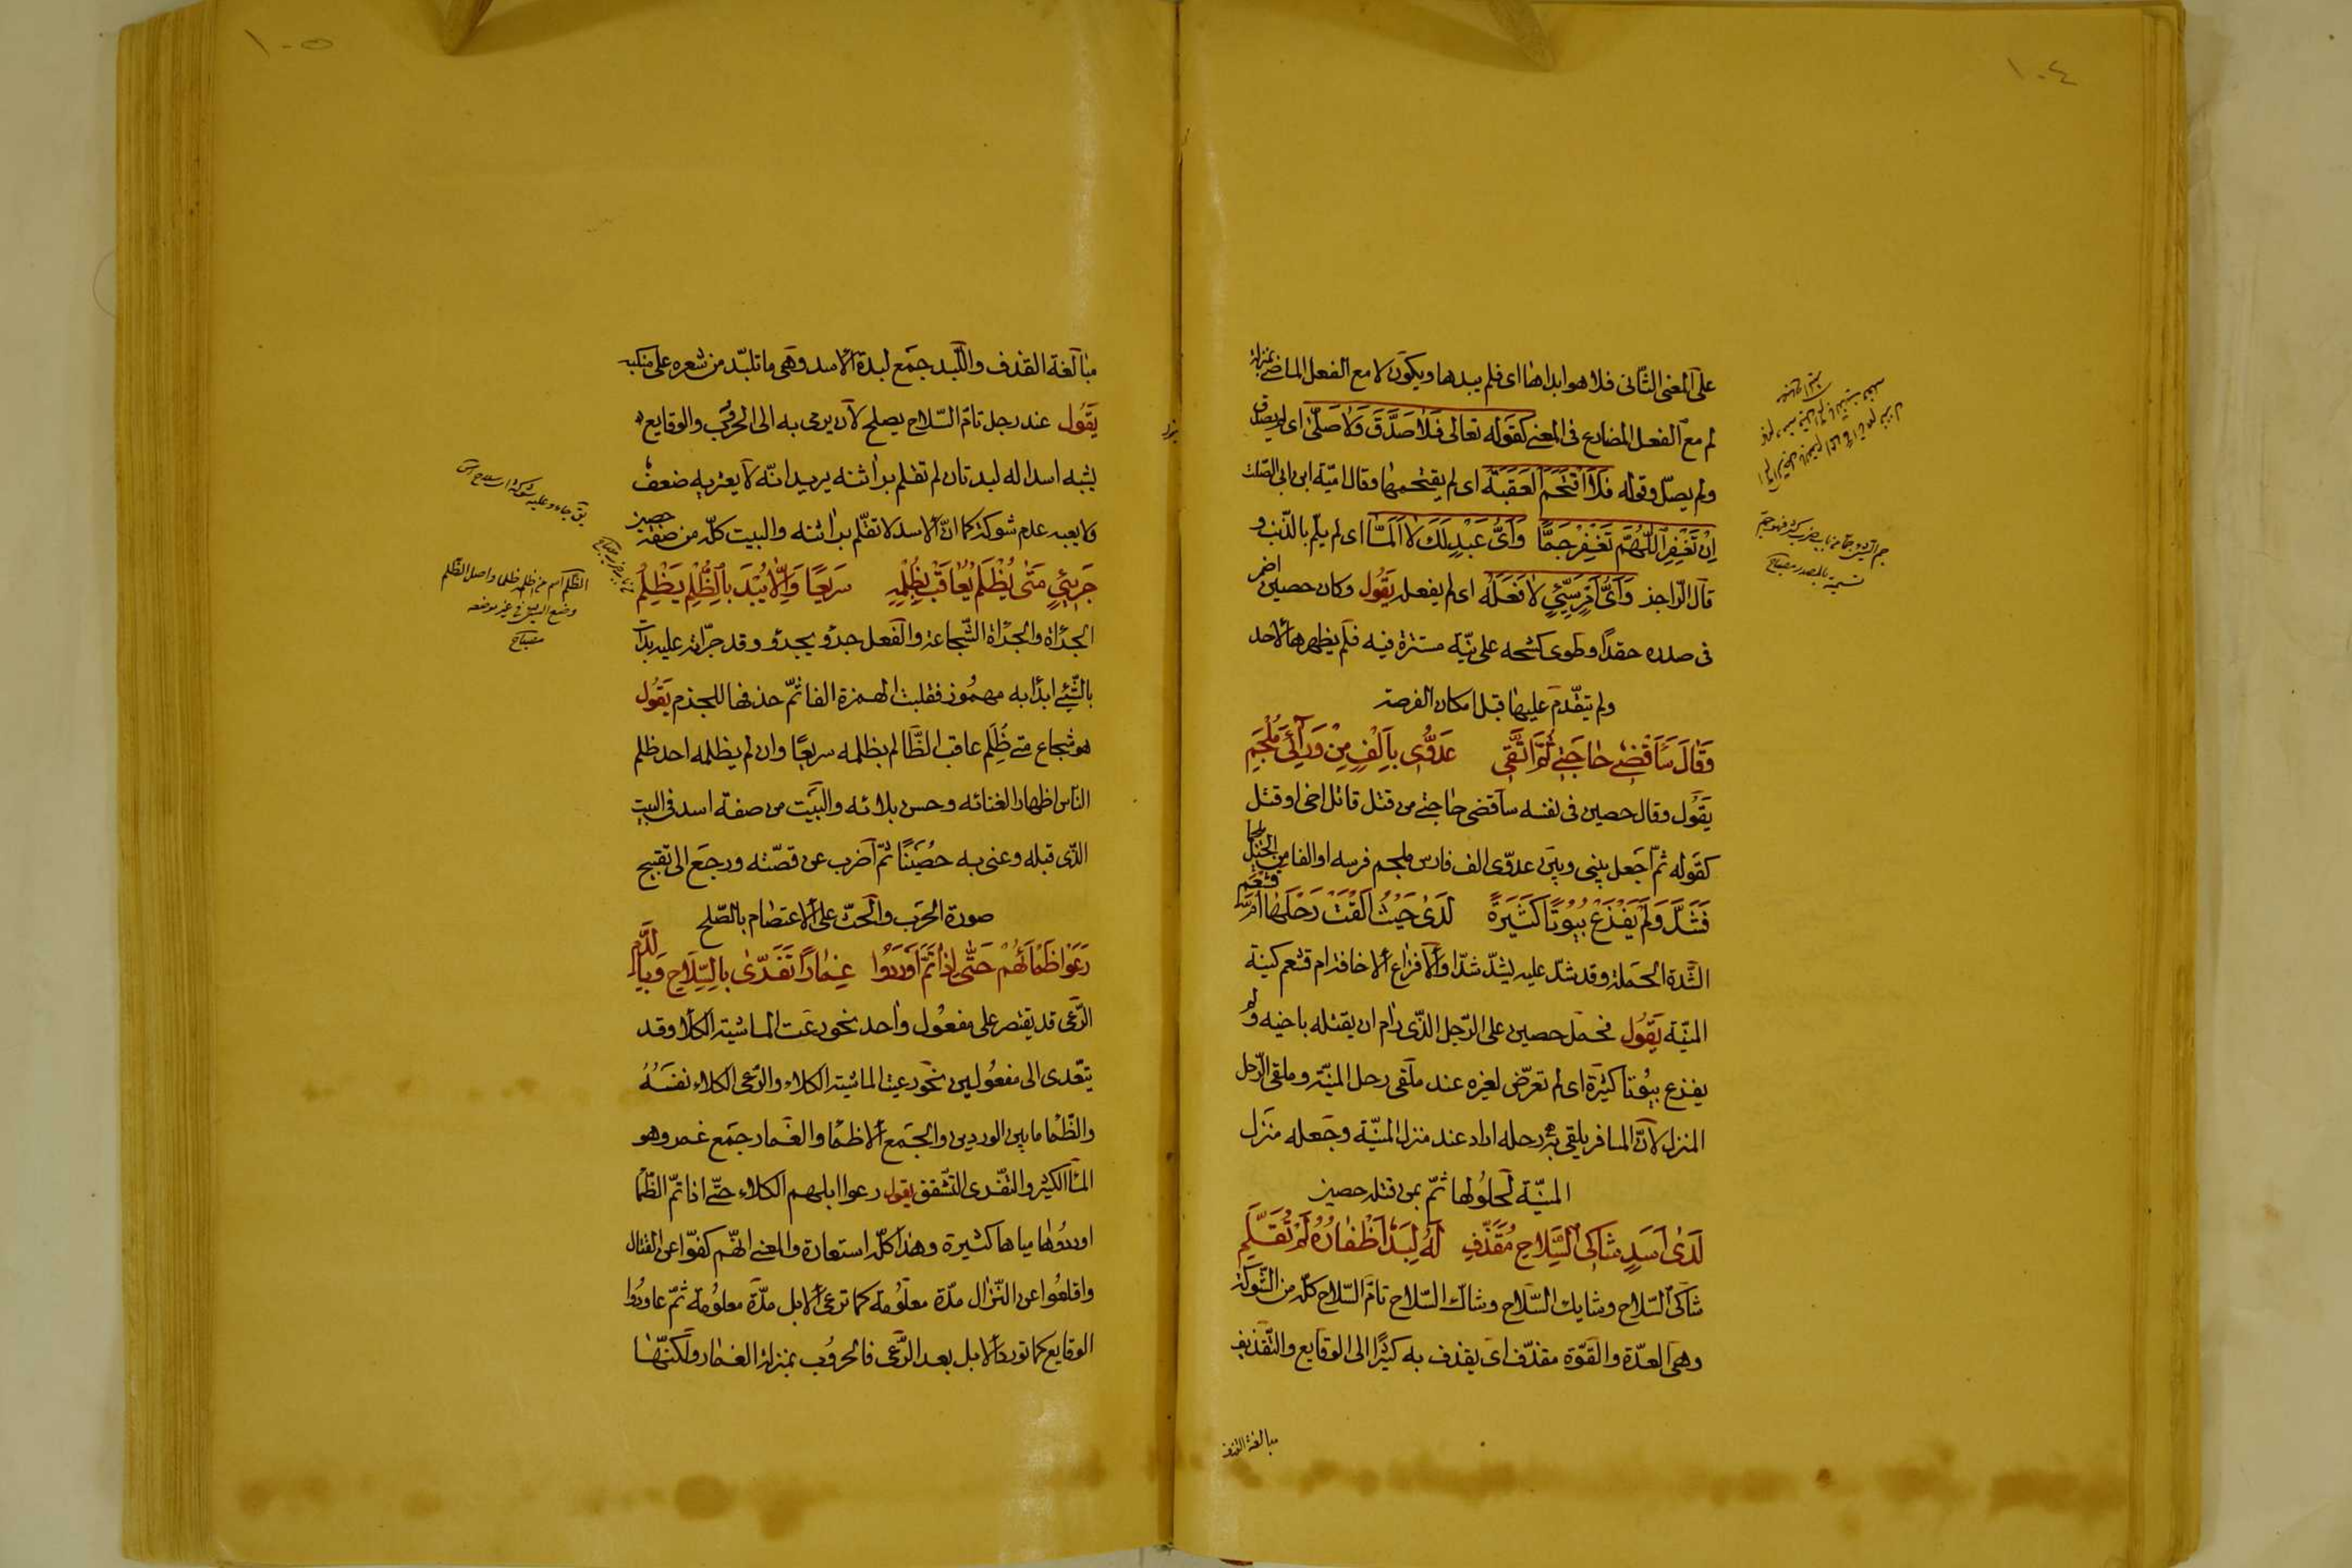 ١٠٤
على المعنى الثانى فلا هو ابداها اى فلم يبدها ويكون لا مع الفعل الماضى بمنزلة
لم مع الفعل المضارع فى المعنى كقوله تعالى فَلَا صَدَّقَ وَلَا صَلّىٰ اى لم يصدق
ولم يصلّ وقوله فَلَا اقْتَحَمَ الْعَقَبَةَ اى لم يقتحمها وقال اميّة ابن ابى الصّلت
اِنْ تَغْفِرِ اللّٰهُمَّ تَغْفِرْ جَمًّا وَاَىُّ عَبْدٍ لَكَ لَا اَلَمَّا اى لم يلمّ بالذّنب و
قال الراجز وَاَىُّ اَمْرٍ سَيِّئٍ لَا فَعَلَهْ اى لم يفعله يَقُول وكان حصين اضمر
فى صدره حقدًا وطوى كشحه على نيّة مستترة فيه فلم يظهرها لاحد
ولم يتقدّم عليها قبل امكان الفرصة
وَقَالَ سَاَقْضِى حَاجَتِى ثُمَّ اَتَّقِى عَدُوِّى بِاَلْفٍ مِنْ وَرَائِىَ مُلْجَمِ
يَقُول وقال حصين فى نفسه سأقضى حاجتى من قتل قاتل اخى او قتل
كقوله ثمّ اجعل بينى وبين عدوّى الف فارس ملجم فرسه او الفا من الخيل
فَشَدَّ وَلَمْ يَفْزَعْ بُيُوتًا كَثِيرَةً لَدَى حَيْثُ اَلْقَتْ رَحْلَهَا اُمُّ قَشْعَمِ
الشّدة الحملة وقد شدّ عليه يشدّ شدّا والافزاع الاخافة ام قشعم كنية
المنيّة يَقُول فحمل حصين على الرّجل الذى رام ان يقتله باخيه ولم
يفزع بيوتا كثيرة اى لم تعرّض لغيره عند ملقى رحل المنيّة وملقى الرّحل
المنزل لانّ المسافر يلقى به رحله اراد عند منزل المنيّة وجعله منزل
المنيّة لحلولها ثمّ بمن قتله حصين
لَدَى اَسَدٍ شَاكِى السِّلَاحِ مُقَذَّفٍ لَهُ لِبَدٌ اَظْفَارُهُ لَمْ تُقَلَّمِ
شاكى السّلاح وشايك السّلاح وشاك السّلاح تامّ السّلاح كلّه من الشّوكة
وهى العدّة والقوّة مقذّف اى يقذف به كثيرًا الى الوقايع والتّقذيف
مبالغة القذف
١٠٥
مبالغة القذف واللّبد جمع لبدة الاسد وهى ما تلبّد من شعره على منكبيه
يَقُول عند رجل تامّ السّلاح يصلح لان يرمى به الى الحروب والوقايع
يشبه اسدا له لبدتان لم تقلم براثنه يريد انّه لا يعتريه ضعف
ولا يعبه عدم شوكة كما انّ الاسد لا تقلّم براثنه والبيت كلّه من صفة حصين
جَرِيئٍ مَتَى يُظْلَمْ يُعَاقِبْ بِظُلْمِهِ سَرِيعًا وَاِلَّا يُبْدَ بِالظُّلْمِ يَظْلِمِ
الجرأة والجراة الشّجاعة والفعل جرؤ يجرؤ وقد جرّأته عليه بدأت
بالشّيئ ابدأ به مهموز فقلبت الهمزة الفا ثمّ حذفها للجزم يَقُول
هو شجاع متى ظُلِم عاقب الظّالم بظلمه سريعًا وان لم يظلمه احد ظلم
الناس اظهارا لغنائه وحسن بلائه والبيت من صفة اسد فى البيت
الذى قبله وعنى به حصينًا ثمّ اضرب عن قصّته ورجع الى تقبيح
صورة الحرب والحثّ على الاعتصام بالصّلح
رَعَوْا ظِمْأَهُمْ حَتَّى اِذَا تَمَّ اَوْرَدُوا غِمَارًا تَفَرَّىٰ بِالسِّلَاحِ وَبِالدَّمِ
الرّعى قد يقتصر على مفعول واحد نحو رعت الماشية الكلأ وقد
يتعدى الى مفعولين نحو رعيت الماشية الكلاء والرّعى الكلاء نفسهُ
والظّما ما بين الوردين والجمع الاظمأ والغمار جمع غمر وهو
المأ الكثير والتفرّى التشقق يقول رعوا ابلهم الكلاء حتّى اذا تمّ الظّمأ
اوردوها مياها كثيرة وهذا كلّه استعارة والمعنى انّهم كفّوا عن القتال
واقلعوا عن النّزال مدّة معلومة كما ترعى الابل مدّة معلومة ثمّ عاودوا
الوقايع كما تورد الابل بعد الرّعى فالحروب بمنزلة الغمار ولكنّها
الظّلم اسم من ظلمه ظلما واصل الظّلم
وضع الشيئ فى غير موضعه
مصباح